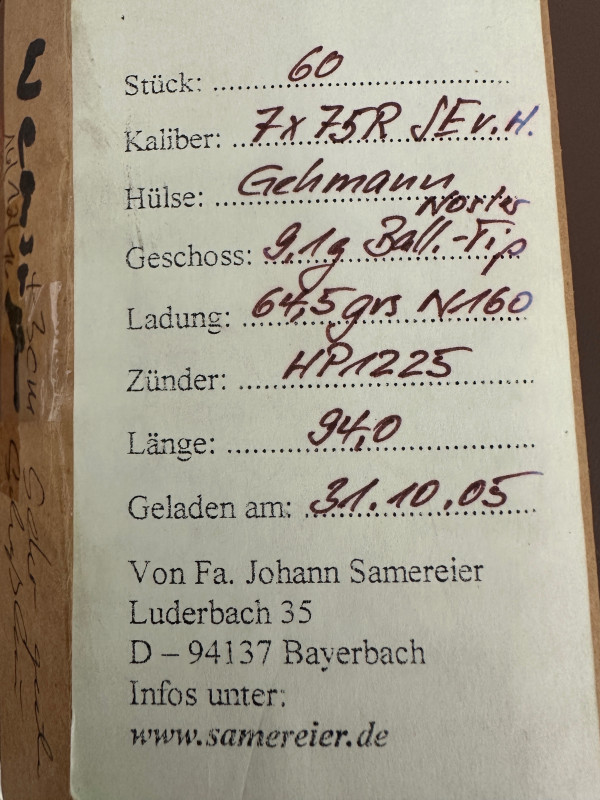 Stück: 60
Kaliber: 7x75R SE v. H.
Hülse: Gehmann
Nosler
Geschoss: 9,1g Ball.-Tip
Ladung: 64,5 grs N160
Zünder: HP1225
Länge: 94,0
Geladen am: 31.10.05
Von Fa. Johann Samereier
Luderbach 35
D – 94137 Bayerbach
Infos unter:
www.samereier.de